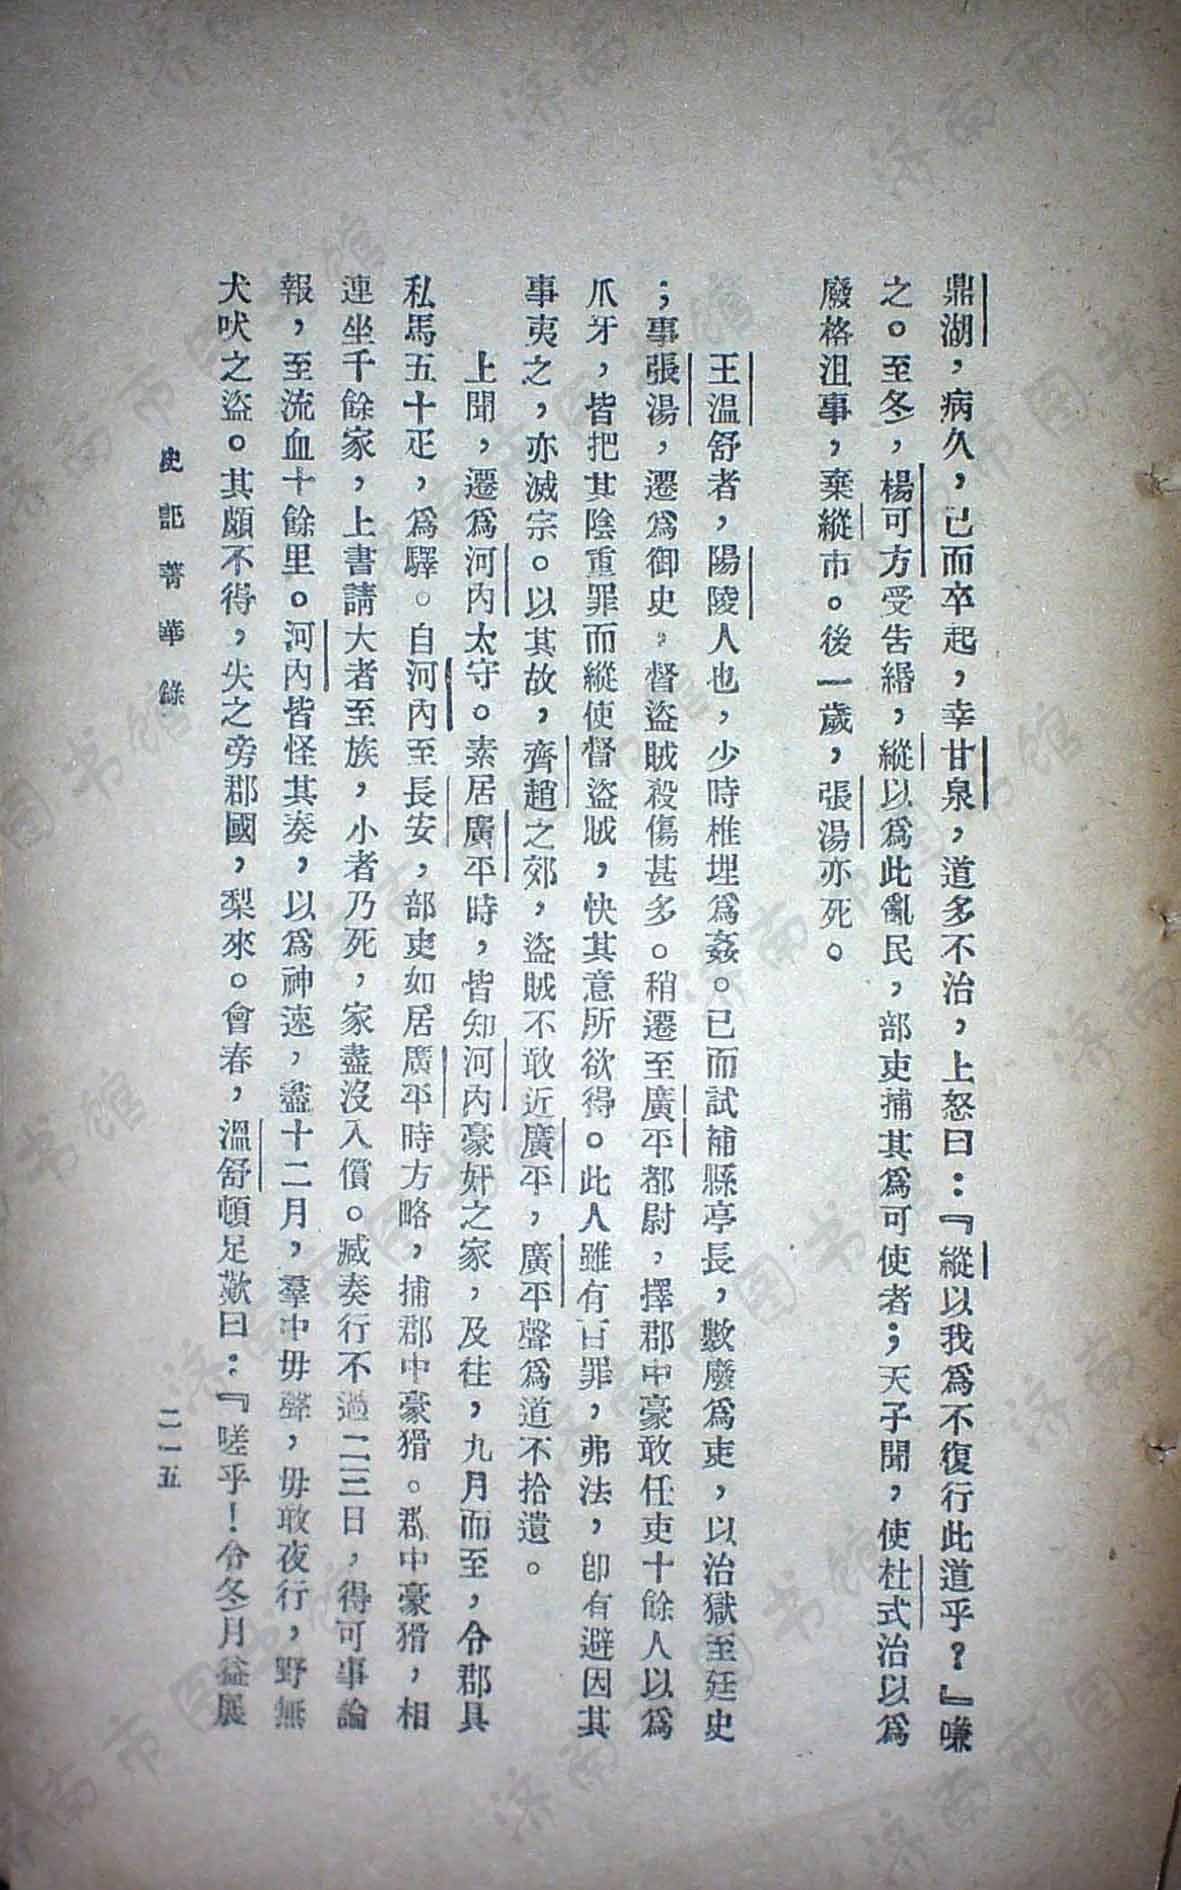 鼎湖，病久，已而卒起，幸甘泉，道多不治，上怒曰：『縱以我爲不復行此道乎？』嗛
之。至冬，楊可方受告緡，縱以爲此亂民，部吏捕其爲可使者；天子聞，使杜式治以爲
廢格沮事，棄縱市。後一歲，張湯亦死。
王溫舒者，陽陵人也，少時椎埋爲姦。已而試補縣亭長，數廢爲吏，以治獄至廷史
；事張湯，遷爲御史。督盜賊殺傷甚多。稍遷至廣平都尉，擇郡中豪敢任吏十餘人以爲
爪牙，皆把其陰重罪而縱使督盜賊，快其意所欲得。此人雖有百罪，弗法，卽有避因其
事夷之，亦滅宗。以其故，齊趙之郊，盜賊不敢近廣平，廣平聲爲道不拾遺。
上聞，遷爲河內太守。素居廣平時，皆知河內豪奸之家，及往，九月而至，令郡具
私馬五十疋，爲驛。自河內至長安，部吏如居廣平時方略，捕郡中豪猾。郡中豪猾，相
連坐千餘家，上書請大者至族，小者乃死，家盡沒入償。臧奏行不過二三日，得可事論
報，至流血十餘里。河內皆怪其奏，以爲神速，盡十二月，羣中毋聲，毋敢夜行，野無
犬吠之盜。其頗不得，失之旁郡國，梨來。會春，溫舒頓足歎曰：『嗟乎！令冬月益展
史記菁華錄
二一五
济南市图书馆